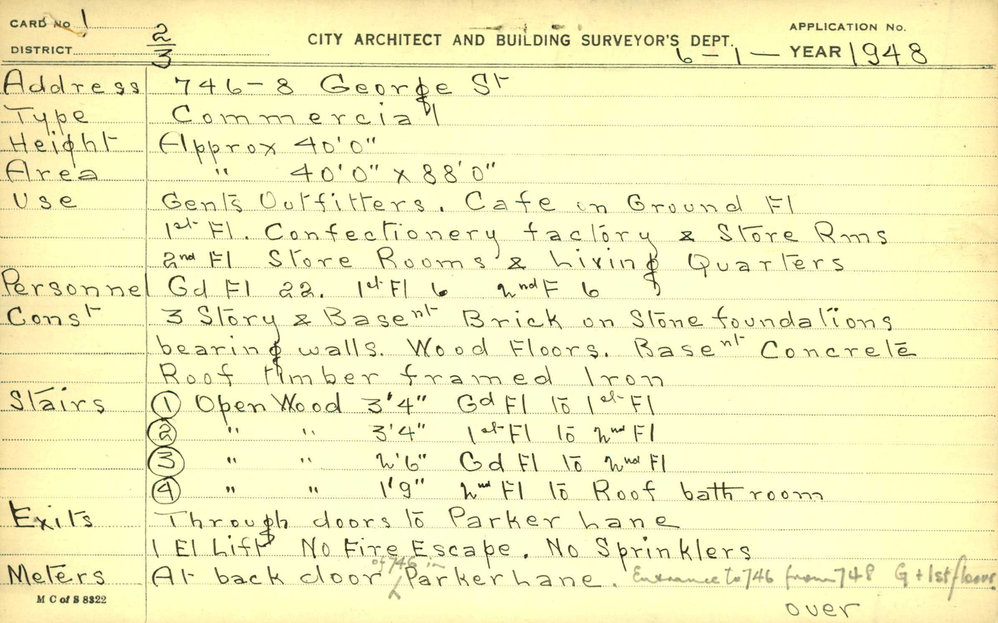 CARD No 1
DISTRICT
2/3
CITY ARCHITECT AND BUILDING SURVEYOR'S DEPT.
APPLICATION No.
6-1- YEAR 1948
Address 746-8 George St
Type Commercial
Height Approx 40'0"
Area " 40'0" x 88'0"
Use Gents Outfitters. Cafe on Ground Fl
1st Fl. Confectionery factory & Store Rms
2nd Fl Store Rooms & Living Quarters
Personnel Gd Fl 22. 1st Fl 6 2nd F 6
Const 3 Story & Basent Brick on Stone foundations
bearing walls. Wood Floors. Basent Concrete
Roof timber framed Iron
Stairs ① Open Wood 3'4" Gd Fl to 1st Fl
② " " 3'4" 1st Fl to 2nd Fl
③ " " 2'6" Gd Fl to 2nd Fl
④ " " 1'9" 2nd Fl to Roof bathroom
Exits Through doors to Parker Lane
1 El Lift No Fire Escape. No Sprinklers
Meters At back door of 746 in Parker Lane. Entrance to 746 from 748 G + 1st floors
M C of S 8322
over